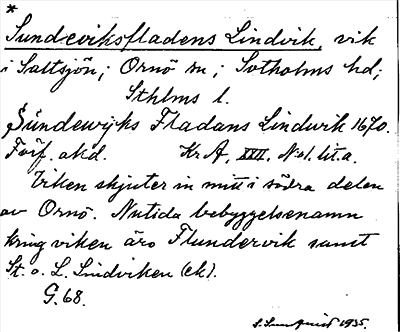 *
Sundeviksfladens Lindvik, vik
i Saltsjön; Ornö sn; Sotholms hd;
Sthlms l.
Sŭndewijks Fladans Lindwik 1670.
Förf. okd. Kr A, XVII. N:o 1. lit. a.
Viken skjuter in mitt i södra delen
av Ornö. Nutida bebyggelsenamn
kring viken äro Flundervik samt
St. o. L. Lindviken (ek).
G. 68.
1935.